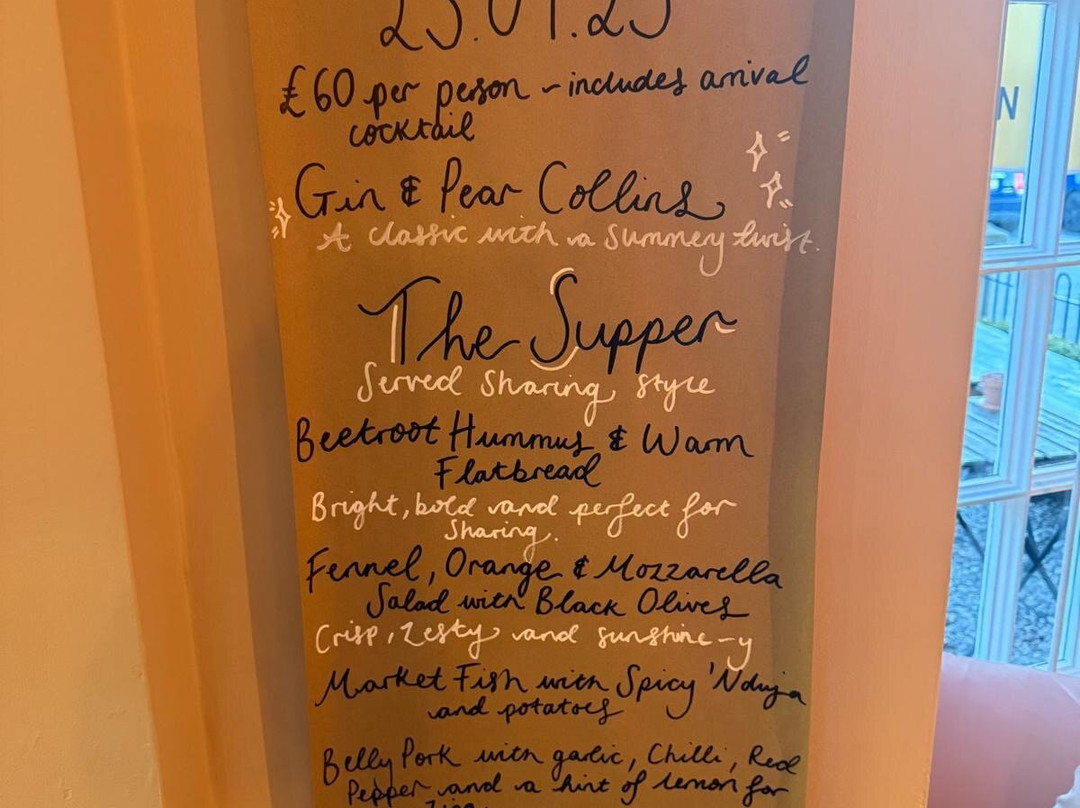 £60 per person - includes arrival
cocktail
Gin & Pear Collins
A classic with a Summery twist.
The Supper
Served Sharing style
Beetroot Hummus & Warm
Flatbread
Bright, bold and perfect for
Sharing.
Fennel, Orange & Mozzarella
Salad with Black Olives
Crisp, Zesty and sunshine-y
Market Fish with Spicy 'Nduja
and potatoes
Belly Pork with garlic, Chilli, Red
Pepper and a hint of lemon for
N